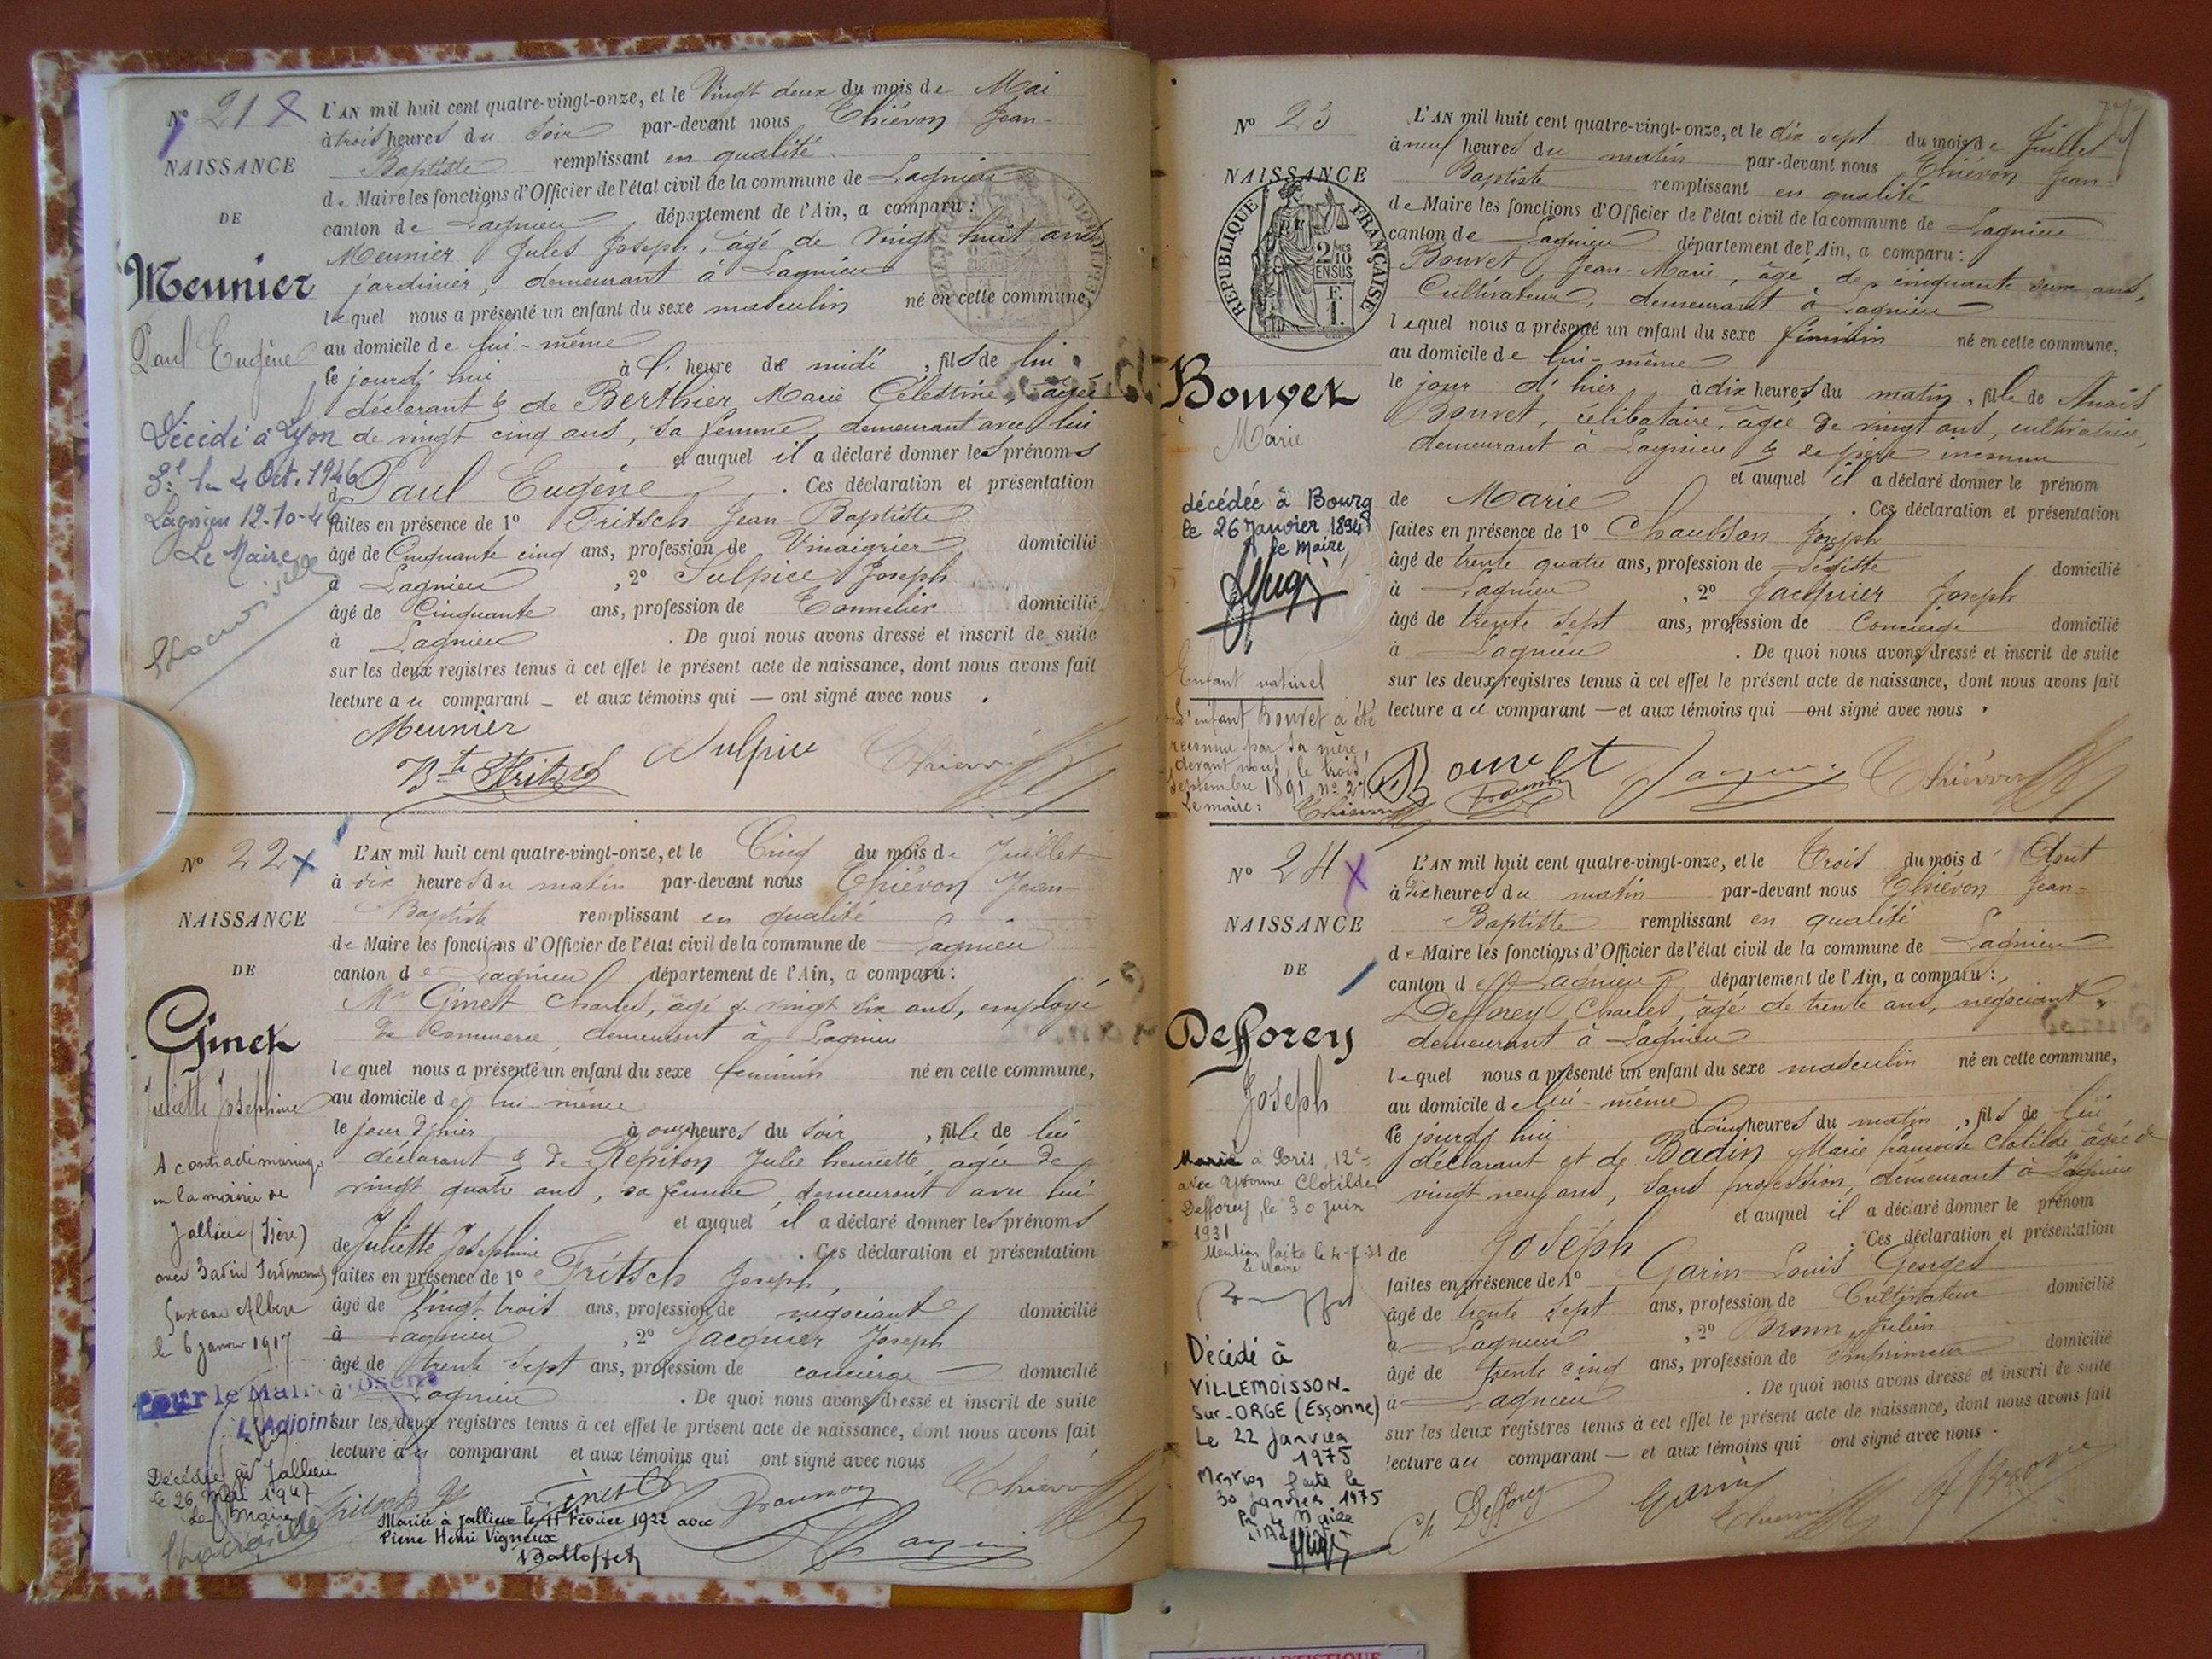 Nº 21
NAISSANCE
DE
Meunier
Paul Eugène
Décédé à Lyon
3e le 4 Oct. 1946
Lagnieu 12-10-46
Le Maire
L'AN mil huit cent quatre-vingt-onze, et le Vingt deux du mois de Mai
à trois heures du soir par-devant nous Thiévon Jean-
Baptiste remplissant en qualité
de Maire les fonctions d'Officier de l'état civil de la commune de Lagnieu
canton de Lagnieu département de l'Ain, a comparu :
Meunier Jules Joseph, âgé de vingt huit ans
jardinier, demeurant à Lagnieu
lequel nous a présenté un enfant du sexe masculin né en cette commune,
au domicile de lui-même
le jourd'hui à l'heure de midi, fils de lui
déclarant & de Berthier Marie Célestine, âgée
de vingt cinq ans, sa femme, demeurant avec lui
et auquel il a déclaré donner les prénoms
de Paul Eugène. Ces déclaration et présentation
faites en présence de 1º Fritsch Jean-Baptiste
âgé de Cinquante cinq ans, profession de Vinaigrier domicilié
à Lagnieu, 2º Sulpice Joseph
âgé de Cinquante ans, profession de Tonnelier domicilié
à Lagnieu. De quoi nous avons dressé et inscrit de suite
sur les deux registres tenus à cet effet le présent acte de naissance, dont nous avons fait
lecture au comparant — et aux témoins qui — ont signé avec nous.
Meunier
Bte Fritsch Sulpice Thiévon
Nº 22
NAISSANCE
DE
Ginet
Juliette Joséphine
A contracté mariage
en la mairie de
Jallieu (Isère)
avec Badin Ferdinand
Gustave Albert
le 6 janvier 1917
Pour le Maire
L'Adjoint
Décédée à Jallieu
le 26 Mai 1947
Le Maire
L'AN mil huit cent quatre-vingt-onze, et le Cinq du mois de Juillet
à dix heures du matin par-devant nous Thiévon Jean-
Baptiste remplissant en qualité
de Maire les fonctions d'Officier de l'état civil de la commune de Lagnieu
canton de Lagnieu département de l'Ain, a comparu :
Mr Ginet Charles, âgé de vingt six ans, employé
de Commerce, demeurant à Lagnieu
lequel nous a présenté un enfant du sexe féminin né en cette commune,
au domicile de lui-même
le jour d'hier à onze heures du soir, fille de lui
déclarant & de Repiton Julie henriette, agée de
vingt quatre ans, sa femme, demeurant avec lui
et auquel il a déclaré donner les prénoms
de Juliette Joséphine. Ces déclaration et présentation
faites en présence de 1º Fritsch Joseph,
âgé de Vingt trois ans, profession de négociant domicilié
à Lagnieu, 2º Jacquier Joseph
âgé de trente sept ans, profession de concierge domicilié
à Lagnieu. De quoi nous avons dressé et inscrit de suite
sur les deux registres tenus à cet effet le présent acte de naissance, dont nous avons fait
lecture au comparant et aux témoins qui ont signé avec nous
Ginet Thiévon
Mariée à Jallieu le 11 Février 1922 avec
Pierre Henri Vigneux
Nº 23
NAISSANCE
REPUBLIQUE FRANÇAISE
2/10 EN SUS
F. 1.
Bouvet
Marie
décédée à Bourg
le 26 Janvier 1894
le maire,
Enfant naturel
L'enfant Bouvet a été
reconnu par sa mère,
devant nous, le trois
Septembre 1891, nº 27
Le maire :
Thiévon
L'AN mil huit cent quatre-vingt-onze, et le dix sept du mois de Juillet
à neuf heures du matin par-devant nous Thiévon Jean-
Baptiste remplissant en qualité
de Maire les fonctions d'Officier de l'état civil de la commune de Lagnieu
canton de Lagnieu département de l'Ain, a comparu :
Bouvet, Jean-Marie, âgé de cinquante deux ans,
Cultivateur, demeurant à Lagnieu
lequel nous a présenté un enfant du sexe féminin né en cette commune,
au domicile de lui-même
le jour d'hier à dix heures du matin, fille de Anaïs
Bouvet, célibataire, âgée de vingt ans, cultivatrice,
demeurant à Lagnieu & de père inconnu
et auquel il a déclaré donner le prénom
de Marie. Ces déclaration et présentation
faites en présence de 1º Chausson Joseph
âgé de trente quatre ans, profession de Légiste domicilié
à Lagnieu, 2º Jacquier Joseph
âgé de trente sept ans, profession de Concierge domicilié
à Lagnieu. De quoi nous avons dressé et inscrit de suite
sur les deux registres tenus à cet effet le présent acte de naissance, dont nous avons fait
lecture au comparant — et aux témoins qui — ont signé avec nous.
Bouvet Thiévon
Nº 24
NAISSANCE
DE
Defforey
Joseph
Marié à Paris, 12e
avec Yvonne Clotilde
Defforey le 30 juin
1931
Mention faite le 4-7-31
le Maire
Décédé à
VILLEMOISSON-
Sur-ORGE (Essonne)
Le 22 Janvier
1975
Mention faite le
30 janvier 1975
L'AN mil huit cent quatre-vingt-onze, et le Trois du mois d'Août
à dix heures du matin par-devant nous Thiévon Jean-
Baptiste remplissant en qualité
de Maire les fonctions d'Officier de l'état civil de la commune de Lagnieu
canton de Lagnieu département de l'Ain, a comparu :
Defforey Charles, âgé de trente ans, négociant
demeurant à Lagnieu
lequel nous a présenté un enfant du sexe masculin né en cette commune,
au domicile de lui-même
le jourd'hui à Cinq heures du matin, fils de lui
déclarant et de Badin Marie françoise Clotilde âgée de
vingt neuf ans, sans profession, demeurant à Lagnieu
et auquel il a déclaré donner le prénom
de Joseph. Ces déclaration et présentation
faites en présence de 1º Garin Louis Georges
âgé de trente sept ans, profession de Cultivateur domicilié
à Lagnieu, 2º Julien
âgé de trente cinq ans, profession de imprimeur domicilié
à Lagnieu. De quoi nous avons dressé et inscrit de suite
sur les deux registres tenus à cet effet le présent acte de naissance, dont nous avons fait
lecture au comparant — et aux témoins qui ont signé avec nous.
Ch Defforey Garin Thiévon